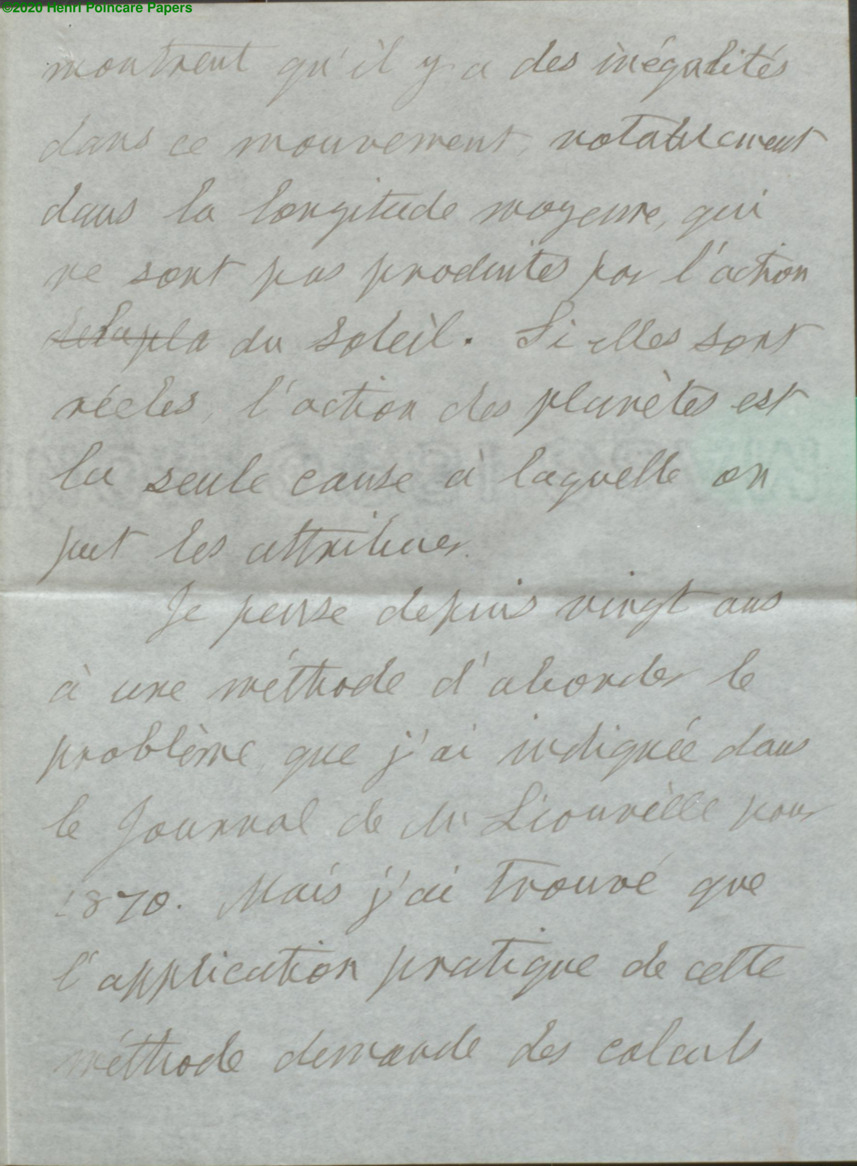 ©2020 Henri Poincare Papers
montrent qu'il y a des inégalités
dans ce mouvement, notablement
dans la longitude moyenne, qui
ne sont pas produites par l'action
de la pla du soleil. Si elles sont
réeles, l'action des planètes est
la seule cause à laquelle on
put les attribuer.
Je pense depuis vingt ans
à une méthode d'aborder le
problème, que j'ai indiquée dans
le Journal de M. Liouvèlle pour
1870. Mais j'ai trouvé que
l'application pratique de cette
méthode demande des calculs